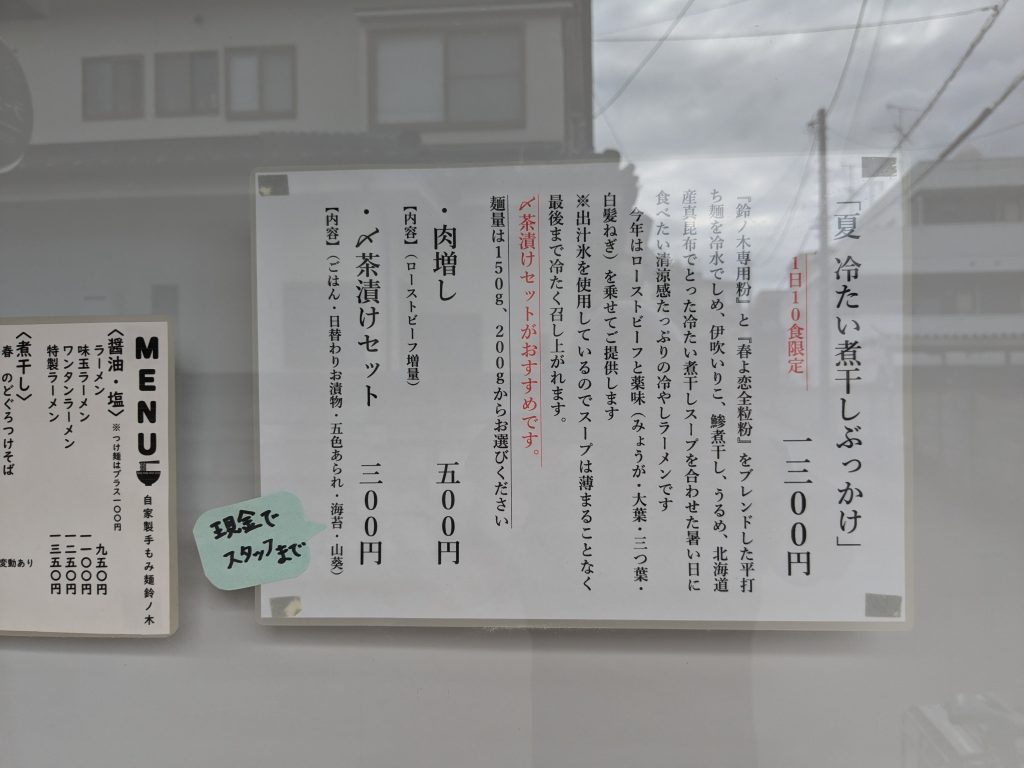 「夏 冷たい煮干しぶっかけ」
1日10食限定
一三00円
『鈴ノ木専用粉』と『春よ恋全粒粉』をブレンドした平打
ち麺を冷水でしめ、伊吹いりこ、鯵煮干し、うるめ、北海道
産真昆布でとった冷たい煮干しスープを合わせた暑い日に
食べたい清涼感たっぷりの冷やしラーメンです
今年はローストビーフと薬味（みょうが・大葉・三つ葉・
白髪ねぎ）を乗せてご提供します
※出汁氷を使用しているのでスープは薄まることなく
最後まで冷たく召し上がれます。
〆茶漬けセットがおすすめです。
麺量は150g、200gからお選びください
・肉増し 五00円
【内容】（ローストビーフ増量）
・〆茶漬けセット 三00円
【内容】（ごはん・日替わりお漬物・五色あられ・海苔・山葵）
現金で
スタッフまで
MENU
自家製手もみ麺鈴ノ木
〈醤油・塩〉 ※つけ麺はプラス一〇〇円
ラーメン 九五〇円
味玉ラーメン 一一〇〇円
ワンタンラーメン 一二五〇円
特製ラーメン 一三五〇円
〈煮干し〉
春 のどぐろつけそば
変動あり